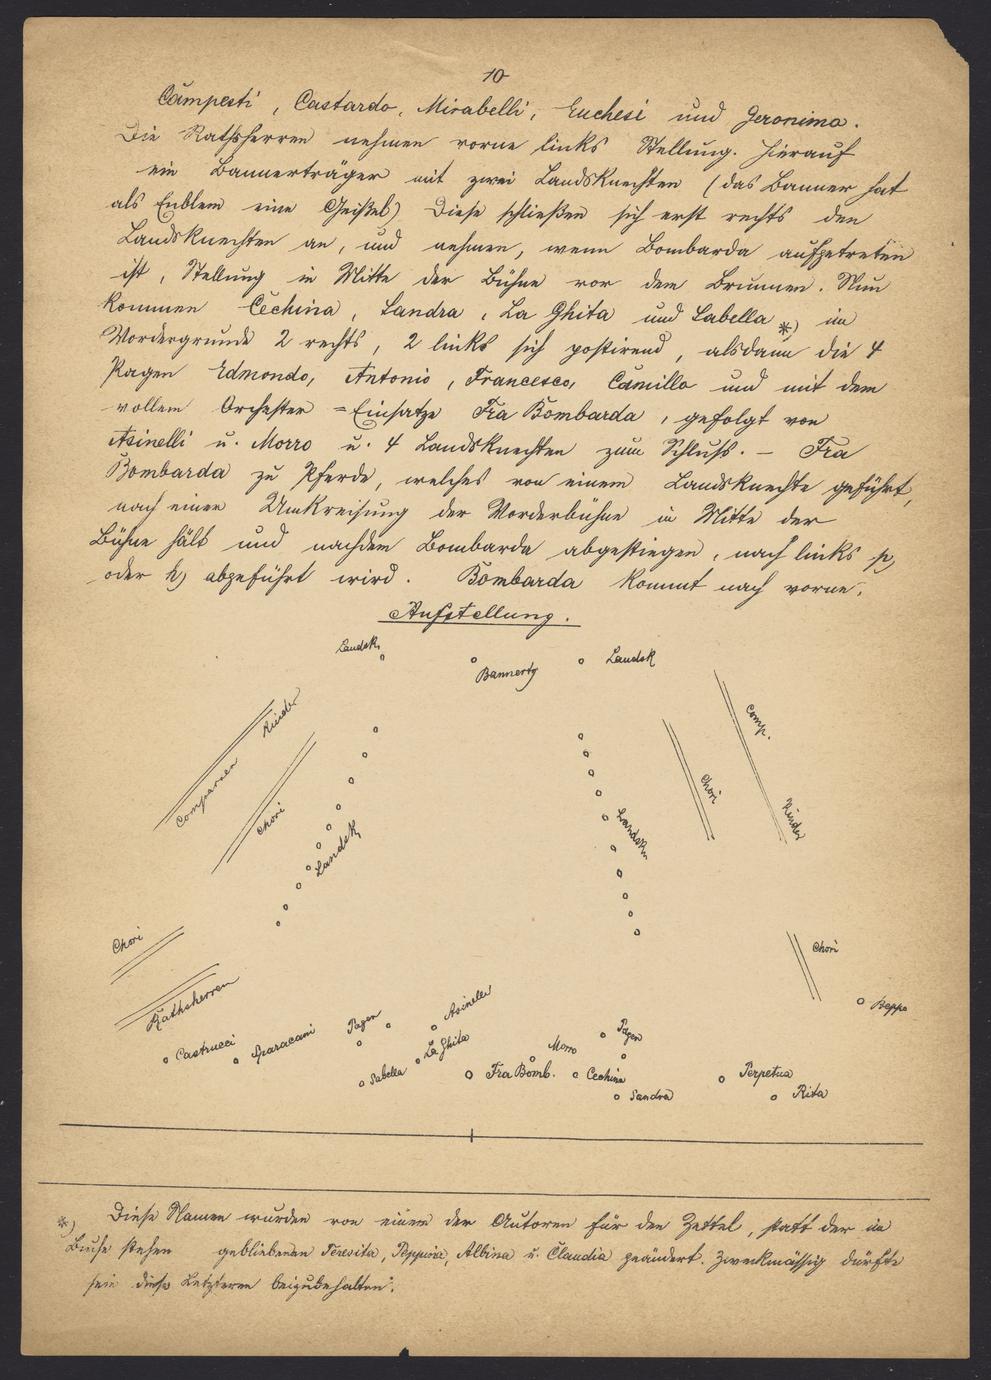 10
Campesti, Castardo, Mirabelli, Euchesi und Jeronimo.
Die Rathsherren nehmen vorne links Stellung. Hierauf
ein Bannerträger mit zwei Landsknechten (das Banner hat
als Emblem eine Geißel) Diese schließen sich erst rechts den
Landsknechten an, und nehmen, wenn Bombarda aufgetreten
ist, Stellung in Mitte der Bühne vor dem Brunnen. Nun
kommen Cechina, Sandra, La Ghita und Isabella *) im
Vordergrunde 2 rechts, 2 links sich postirend, alsdann die 4
Pagen Edmondo, Antonio, Francesco, Camillo und mit dem
vollem Orchester=Einsatze Fra Bombarda, gefolgt von
Asinelli u. Morro u. 4 Landsknechten zum Schluss. — Fra
Bombarda zu Pferde, welches von einem Landsknechte geführt,
nach einer Umkreisung der Vorderbühne in Mitte der
Bühne hält und nachdem Bombarda abgestiegen, nach links p)
oder h) abgeführt wird. Bombarda kommt nach vorne.
Aufstellung.
Landsk.
Bannertg
Landsk
Kinder
Comparsen
Chori
Landsk
Landskn
Chori
Comp.
Kinder
Chori
Rathsherren
Chori
Beppo
Castrucci
Sparacani
Pagen
Asinelli
La Ghita
Isabella
Fra Bomb.
Morro
Cechina
Pagen
Sandra
Perpetua
Rita
*) Diese Namen wurden von einem der Autoren für den Zettel, statt der im
Buche stehen gebliebenen Teresita, Peppina, Albina u. Claudia geändert. Zweckmässig dürfte
sein diese Letzteren beizubehalten.